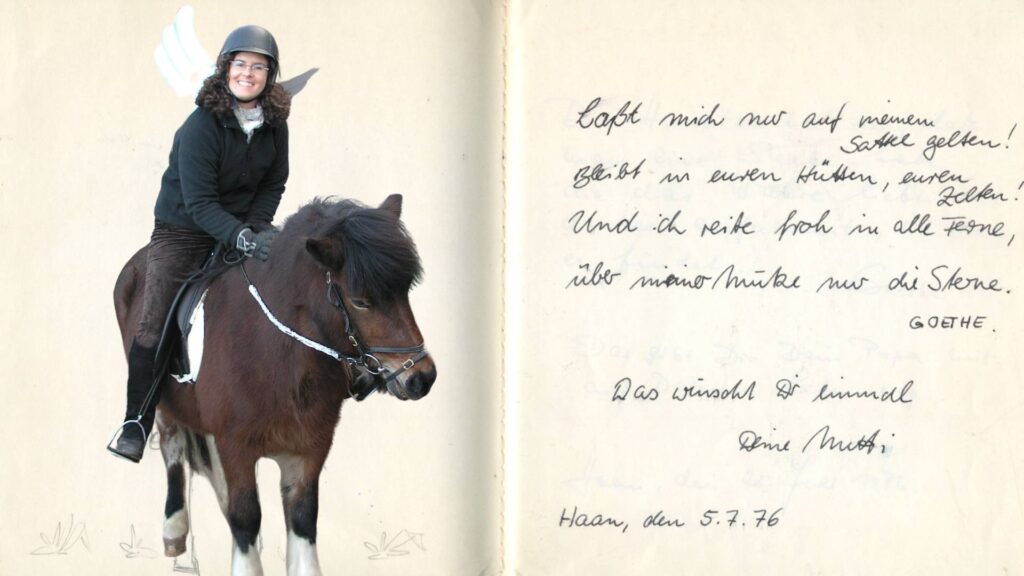 Laßt mich nur auf meinem
Sattel gelten!
Bleibt in euren Hütten, euren
Zelten!
Und ich reite froh in alle Ferne,
über meiner Mütze nur die Sterne.
GOETHE.
Das wünscht Dir einmal
Deine Mutti
Haan, den 5.7.76